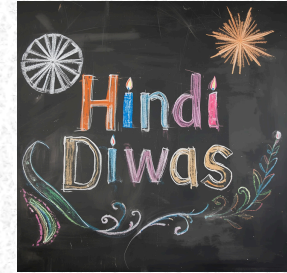 Hindi
Diwas